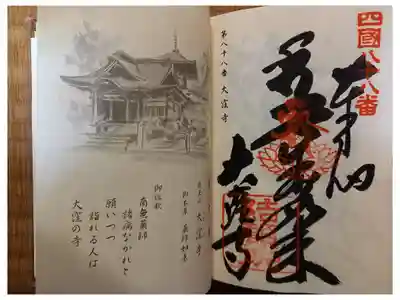 四國八十八番
奉納
大窪寺
第八十八番 大窪寺
医王山 大窪寺
御本尊 薬師如来
御詠歌
南無薬師
諸病なかれと
願いつつ
詣れる人は
大窪の寺